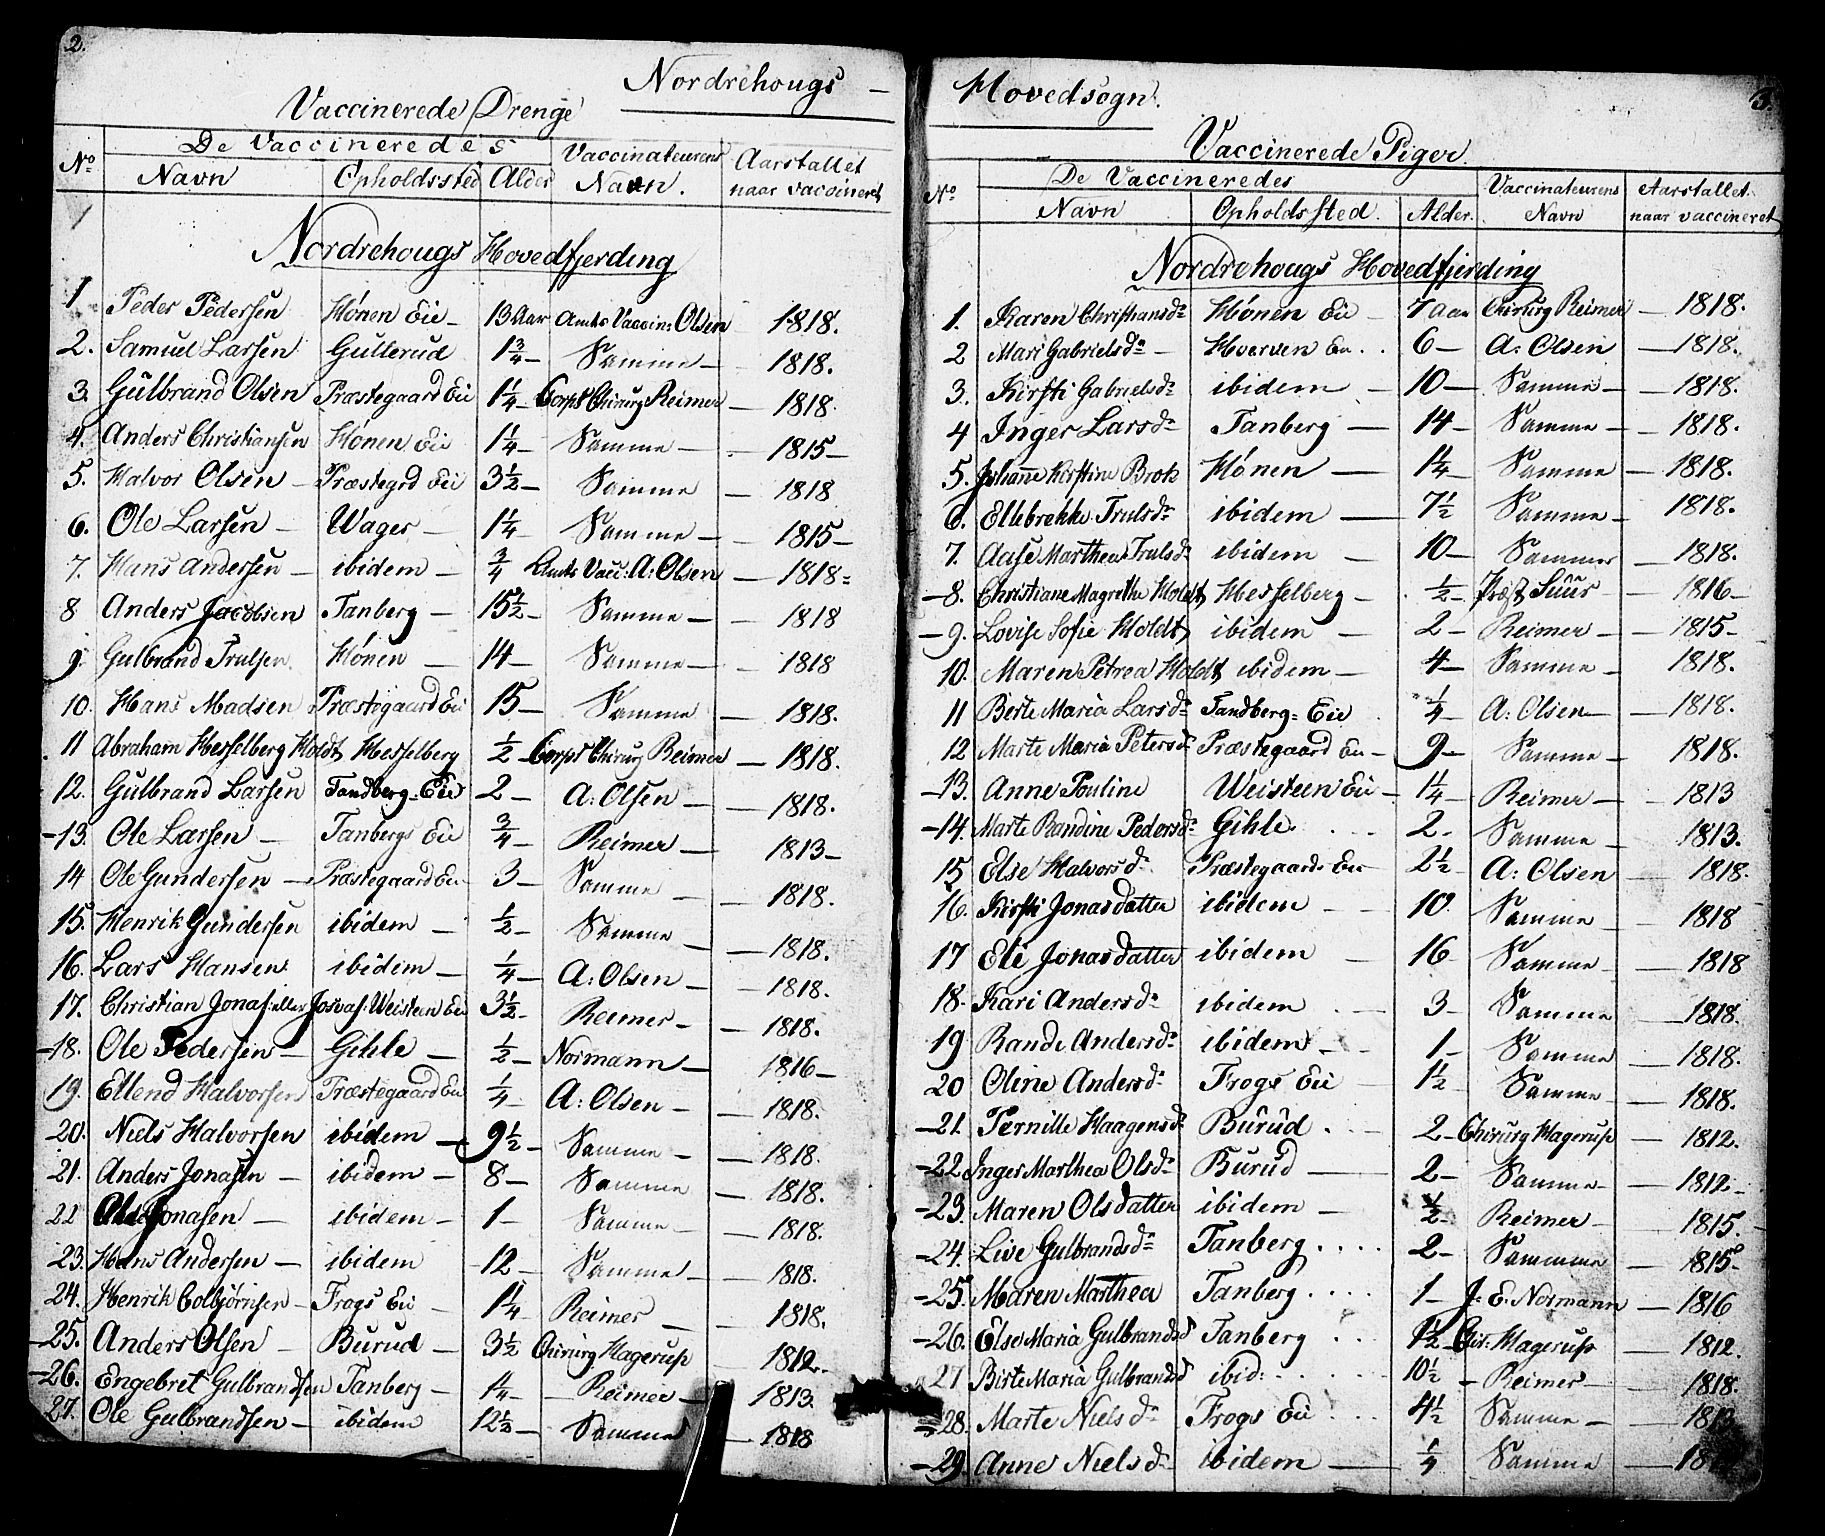 2.
Nordrehougs —
Vaccinerede Drenge
No. De Vaccineredes Vaccinateurens Navn. Aarstallet naar vaccineret
Navn Opholdssted Alder
Nordrehougs Hovedfjerding
1 Peder Pedersen Hönen Eie — 13 Aar Amts Vaccin: Olsen 1818.
2. Samuel Larsen Gullerud 1 3/4 — Samme — 1818.
3. Gulbrand Olsen Præstegaard Eie 1 1/4 — Corps Chirurg Reimer — 1818.
4. Anders Christiansen Hönen Eie 1 1/4 — Samme — 1815 —
5. Halvor Olsen — Præstegrd Eie 3 1/2 — Samme — 1818
6. Ole Larsen — Wager — 1 1/4 — Samme — 1815 —
7. Hans Andersen — ibidem — 3/4 Amts Vacc: A: Olsen — 1818 =
8 Anders Jacobsen Tanberg — 15 1/2 — Samme — 1818
9. Gulbrand Trulsen Hönen — 14 — Samme — 1818
10. Hans Madsen Præstegaard Eie 15 — Samme — 1818.
11 Abraham Hesselberg Holdt Hesselberg 1/2 — Corps Chirurg Reimer — 1818.
12. Gulbrand Larsen Tandberg = Eie 2 — A: Olsen — 1818.
— 13. Ole Larsen — Tanbergs Eie 3/4 — Reimer — 1813 —
14 Ole Gundersen — Præstegaard Eie 3 — Samme — 1818.
15. Henrik Gundersen ibidem — 1/2 — Samme — 1818.
16. Lars Hansen ibidem — 1/4 — A: Olsen — 1818.
17. Christian Jonas: eller Josvas: Weisteen Eie 3 1/2 — Reimer — 1818.
— 18. Ole Pedersen — Gihle — 1/2 — Normann — 1816 —
19. Ellend Halvorsen Præstegaard Eie 1/4 — A: Olsen — 1818.
20. Niels Halvorsen ibidem — 9 1/2 — Samme — 1818.
21. Anders Jonasen — ibidem — 8 — Samme — 1818.
22 Jonasen — ibidem — 1 — Samme — 1818.
23. Hans Andersen — ibidem 12 — Samme — 1818.
24. Henrik Colbjörnsen — Frogs Eie — 1 1/4 Reimer — 1818.
— 25. Anders Olsen — Burud — 3 1/2 Chirurg Hagerup — 1812.
— 26. Engebret Gulbrandsen Tanberg — 1 1/4 — Reimer — 1813.
27. Ole Gulbrandsen — ibidem 12 1/2 — Samme — 1818
3.
Hovedsogn.
Vaccinerede Piger.
No. De Vaccineredes Vaccinateurens Navn Aarstallet naar vaccineret
Navn Opholdssted. Alder.
Nordrehougs Hovedfjerding
1. Karen Christiansdr Hönen Eie — 7 Aar Chirurg Reimer — 1818.
2 Mari Gabrielsdr — Hverven Eie . . 6 — A: Olsen — 1818.
3. Kirsti Gabrielsdr ibidem — 10 — Samme — 1818.
4 Inger Larsdr Tanberg — 14 — Samme — 1818.
5. Johanne Kirstine Brok Hönen — 1 1/4 — Samme — 1818.
6. Ellebrekke Trulsdr ibidem — 7 1/2 Samme — 1818.
7. Aase Marthea Trulsdr ibidem — 10 — Samme 1818.
— 8. Christiane Magrethe Holdt Hesselberg — 1/2 — Præst Suur — 1816 —
— 9. Lovise Sofie Holdt ibidem — 2 — Reimer — 1815 —
10. Maren Petrea Holdt ibidem — 4 — Samme — 1818.
11 Birte Maria Larsdr Tandberg = Eie . 1/4 A: Olsen — 1818.
12 Marte Maria Petersdr Præstegaard Eie — 9 — Samme — 1818.
— 13. Anne Pouline Weisteen Eie — 1 1/4 — Reimer — 1813
— 14. Marte Randine Pedersdr Gihle . . . . 2 — Samme — 1813.
15 Else Halvorsdr Præstegaards Eie 2 1/2 — A: Olsen — 1818.
16. Kirsti Jonasdatter ibidem — — 10. Samme — 1818
17 Eli Jonasdatter ibidem — 16 — Samme — 1818
18. Kari Andersdr ibidem . — 3 — Samme — 1818.
19 Rande Andersdr ibidem — — 1 — Samme — 1818.
20 Oline Andersdr Frogs Eie — 1 1/2 — Samme — 1818.
— 21. Pernille Haagensdr Burud . — 2 — Chirurg Hagerup — 1812.
— 22. Inger Marthea Olsdr Burud — 2 — Samme — 1812 —
— 23. Maren Olsdatter ibidem — 1/2 — Reimer — 1815.
— 24. Live Gulbrandsdr Tanberg . . . . 2 — Samme — 1815 —
— 25. Maren Marthea Tanberg . . . . 1 — J. E. Normann — 1816
— 26. Else Maria Gulbrandsd Tanberg . . . 1 1/2 — Chir: Hagerup — 1812.
27 Birte Maria Gulbrandsd ibid: . . . . . 10 1/2 — Reimer — 1818.
= 28. Marte Nielsdr Frogs Eie . . . 4 1/2 Samme —
— 29. Anne Nielsdr ibidem — 1/4 Samme —